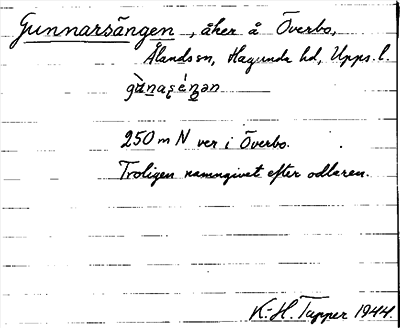 Gunnarsängen, åker å Överbo,
Ålands sn, Hagunda hd, Upps. l.
250 m N ver i Överbo.
Troligen namngivet efter odlaren.
K.-H. Tapper 1944